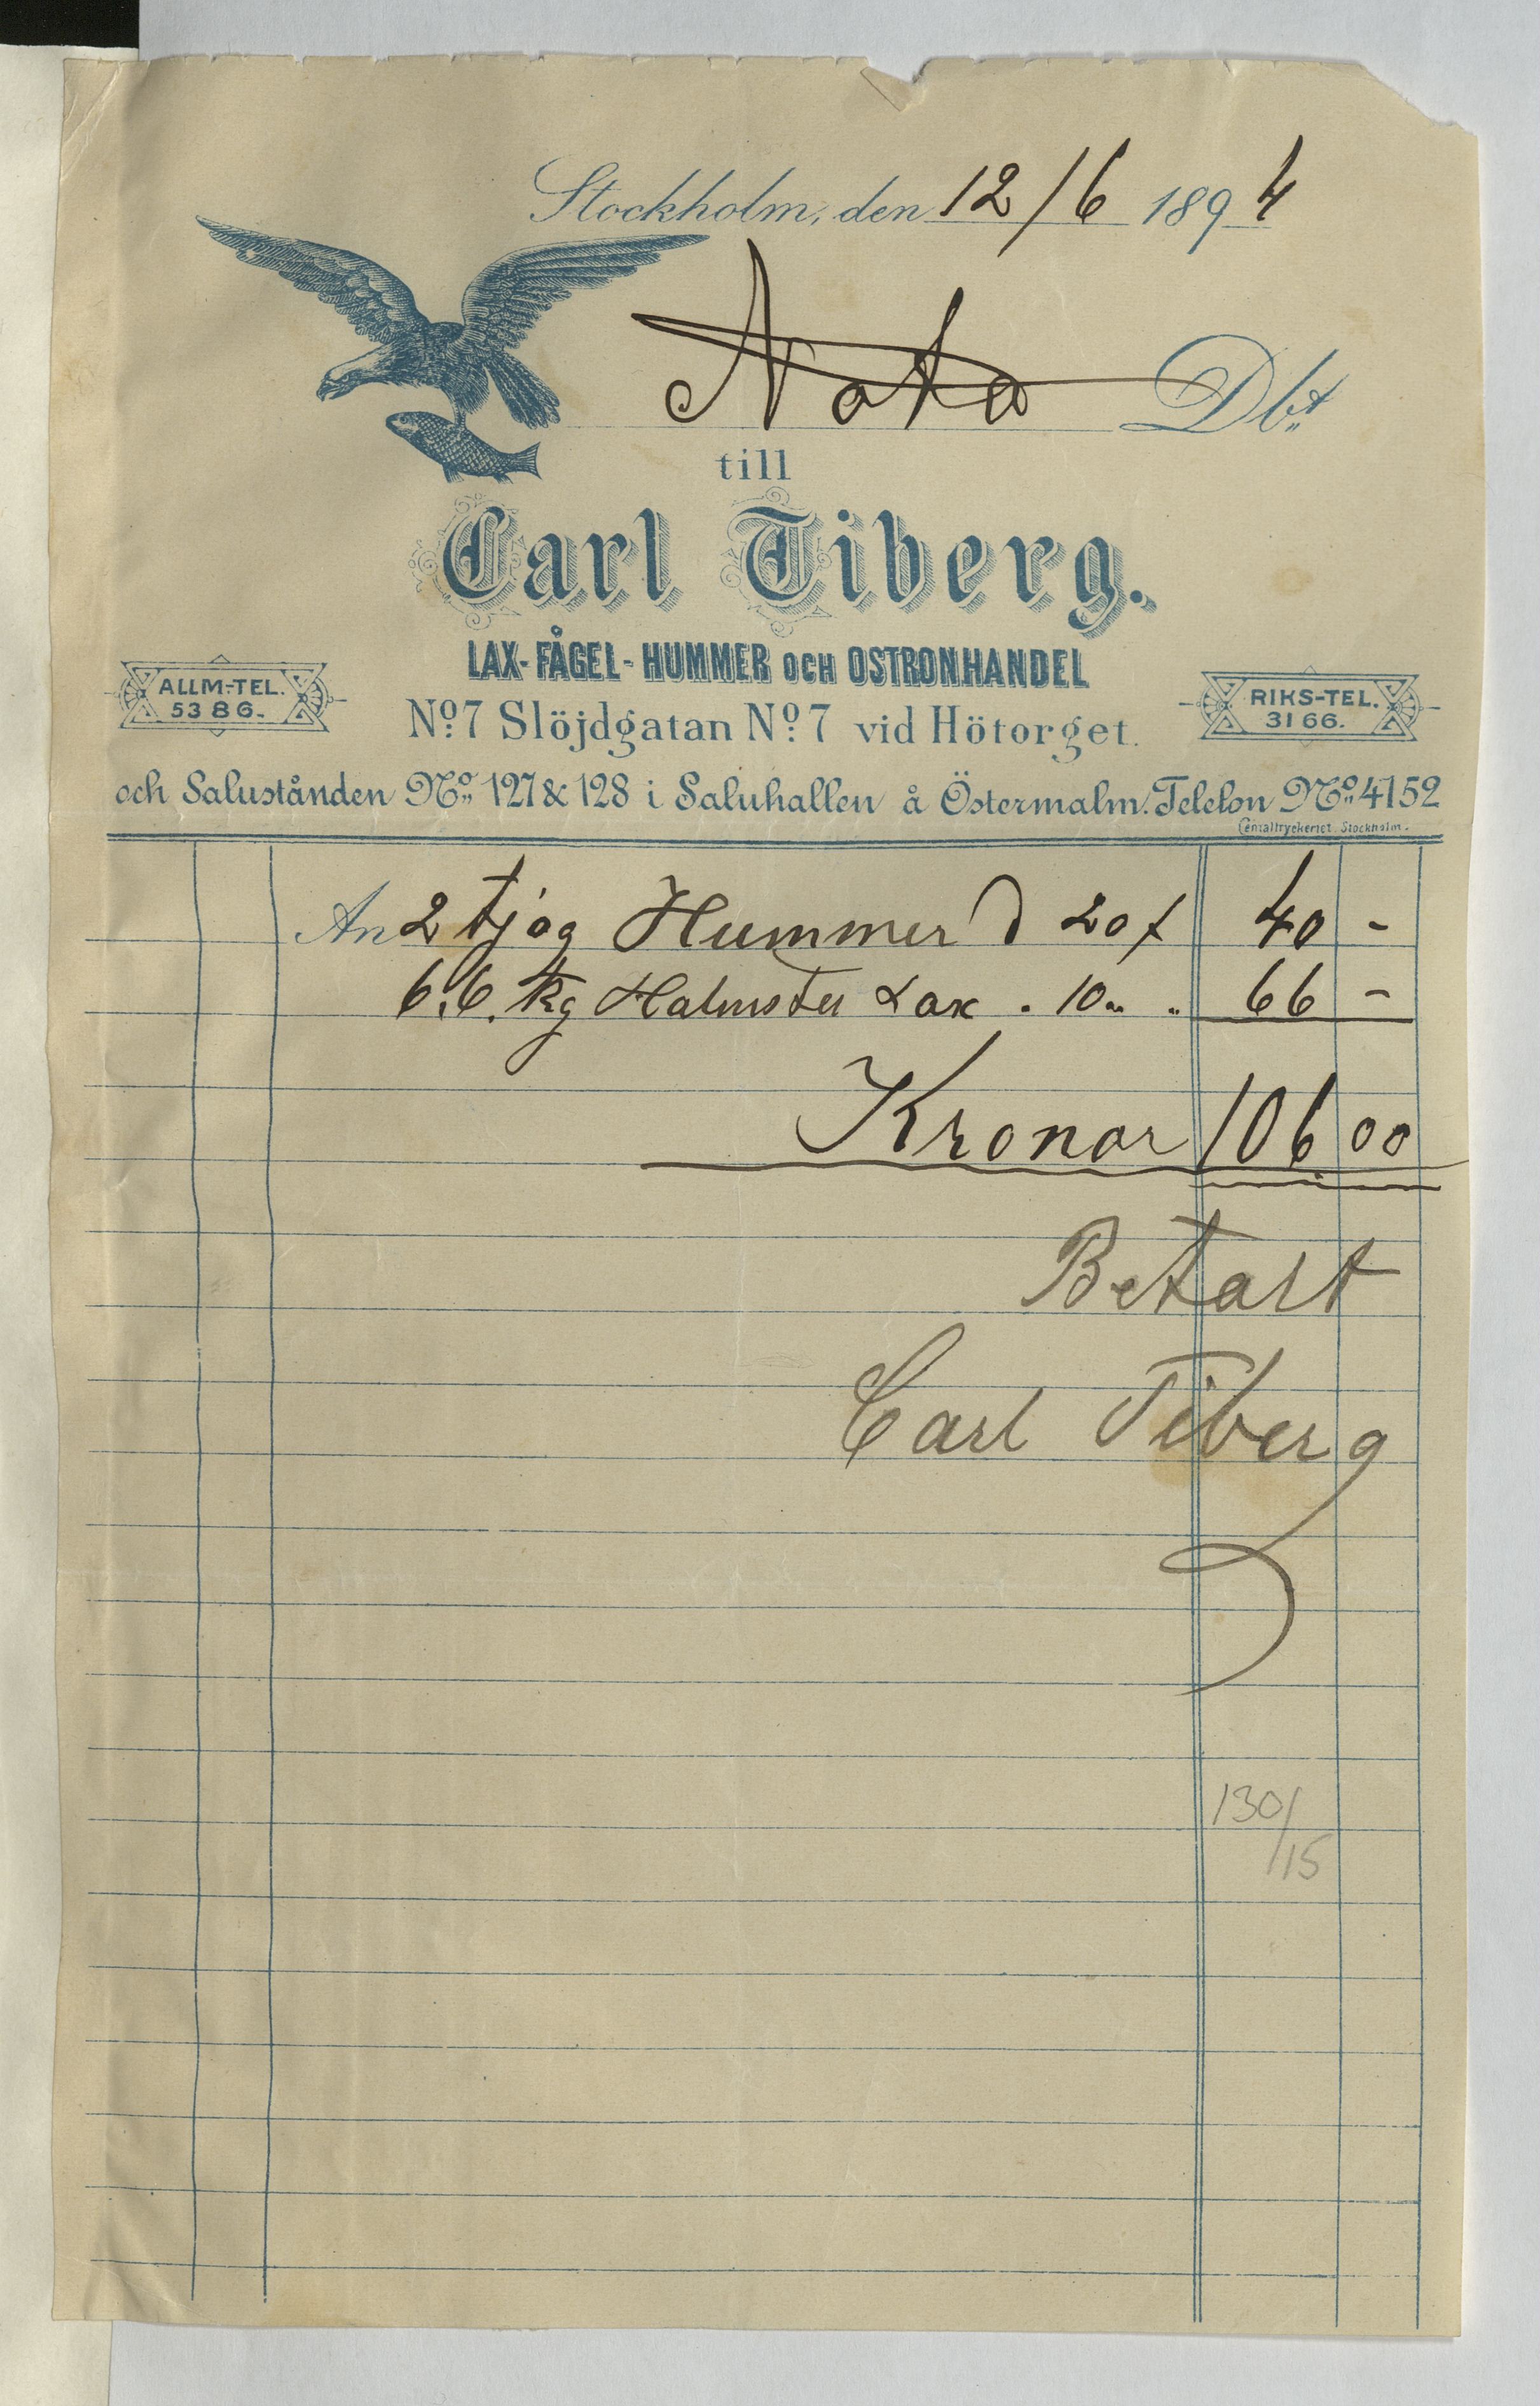 Stockholm, den 12/6 1894
Nota Dbt
till
Carl Tiberg.
LAX-FÅGEL-HUMMER OCH OSTRONHANDEL
ALLM-TEL. 5386.
No 7 Slöjdgatan No 7 vid Hötorget.
RIKS-TEL. 3166.
och Salustånden No 127 & 128 i Saluhallen å Östermalm. Telefon No 4152
Centraltryckeriet. Stockholm.
An 2 tjog Hummer à 20 40 -
6.6. kg Halmstad Lax . 10 „ „ 66 -
Kronor 106 00
Betalt
Carl Tiberg
130/15